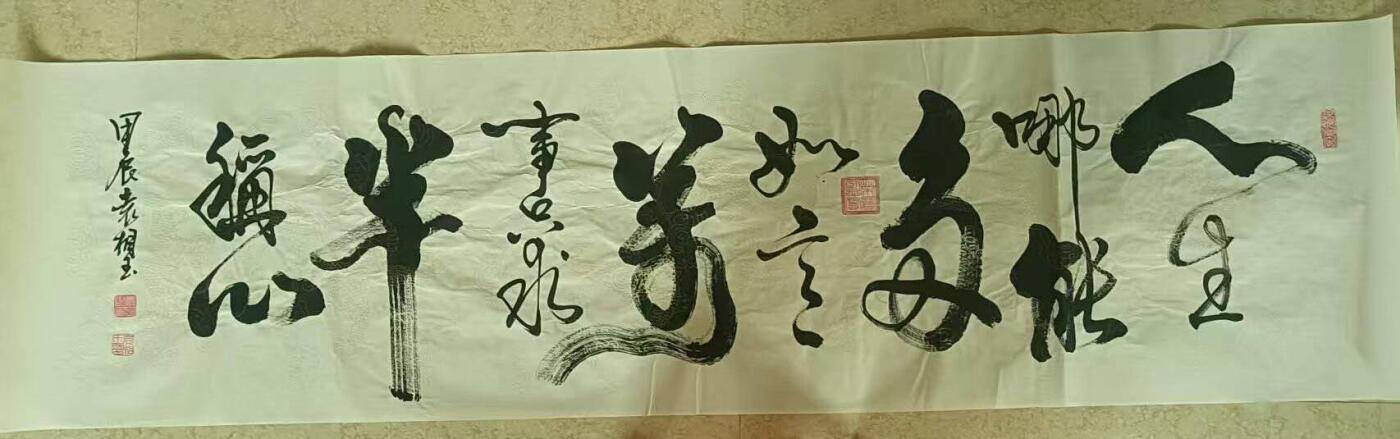 人生
哪能
多
如意
萬
事只求
半
稱心
甲辰袁相玉